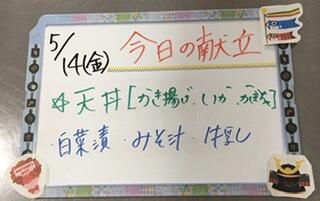 5/14(金)
今日の献立
☆天丼[かき揚げ、いか、かぼちゃ]
・白菜漬・みそ汁・牛乳